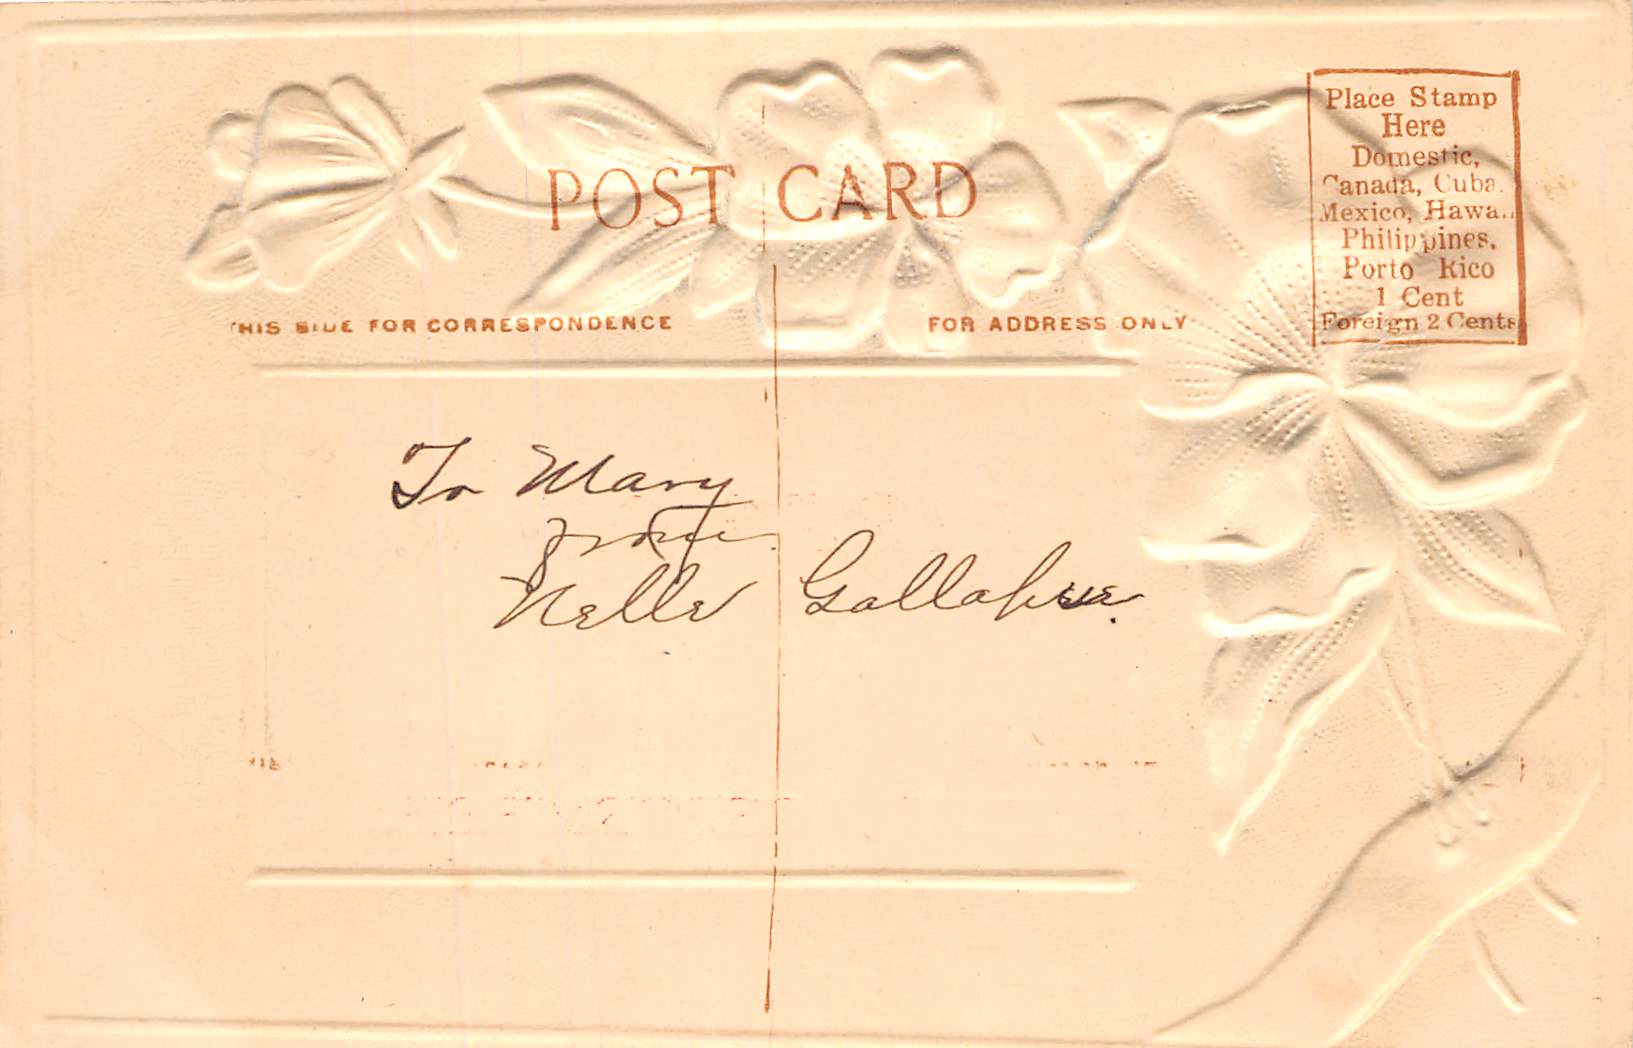 POST CARD
THIS SIDE FOR CORRESPONDENCE
FOR ADDRESS ONLY
Place Stamp
Here
Domestic,
Canada, Cuba.
Mexico, Hawa..
Philippines,
Porto Rico
1 Cent
Foreign 2 Cents
To Mary
from
Nelle Gallahue.